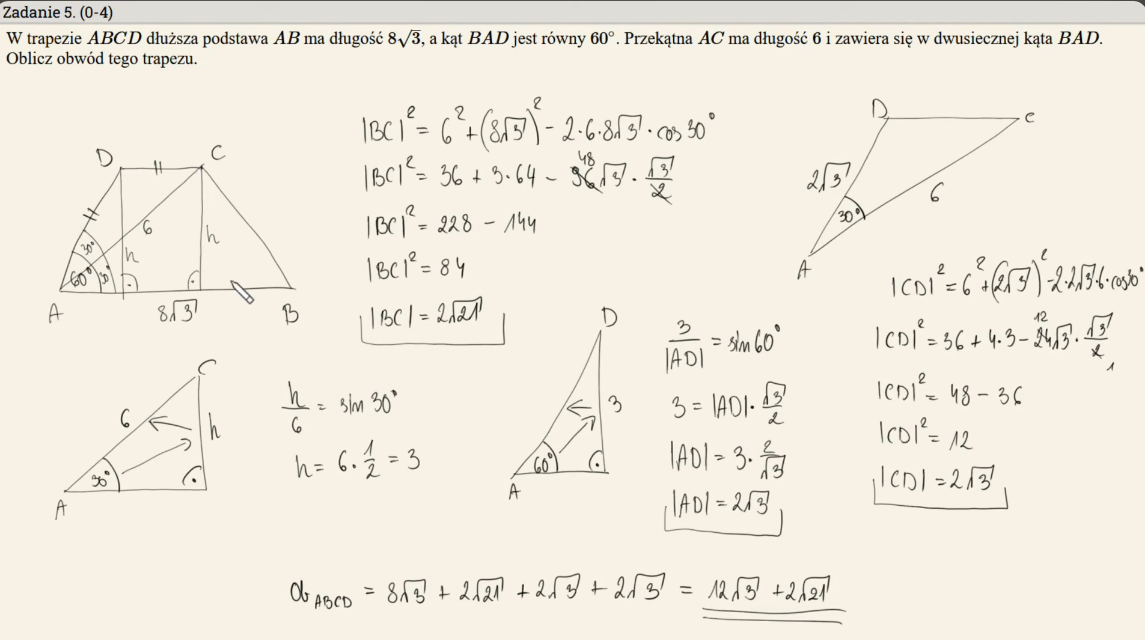 Zadanie 5. (0-4)
W trapezie ABCD dłuższa podstawa AB ma długość 8√3, a kąt BAD jest równy 60°. Przekątna AC ma długość 6 i zawiera się w dwusiecznej kąta BAD.
Oblicz obwód tego trapezu.
D C
6
h h
30°
60° 30°
A 8√3 B
|BC|² = 6² + (8√3)² - 2·6·8√3 · cos 30°
|BC|² = 36 + 3·64 - 96√3 · √3/2
48
|BC|² = 228 - 144
|BC|² = 84
|BC| = 2√21
D C
2√3
6
30°
A
|CD|² = 6² + (2√3)² - 2·2√3·6·cos30°
|CD|² = 36 + 4·3 - 24√3 · √3/2
12
1
|CD|² = 48 - 36
|CD|² = 12
|CD| = 2√3
C
6 h
30°
A
h/6 = sin 30°
h = 6 · 1/2 = 3
D
3
60°
A
3/|AD| = sin 60°
3 = |AD| · √3/2
|AD| = 3 · 2/√3
|AD| = 2√3
Ob ABCD = 8√3 + 2√21 + 2√3 + 2√3 = 12√3 + 2√21